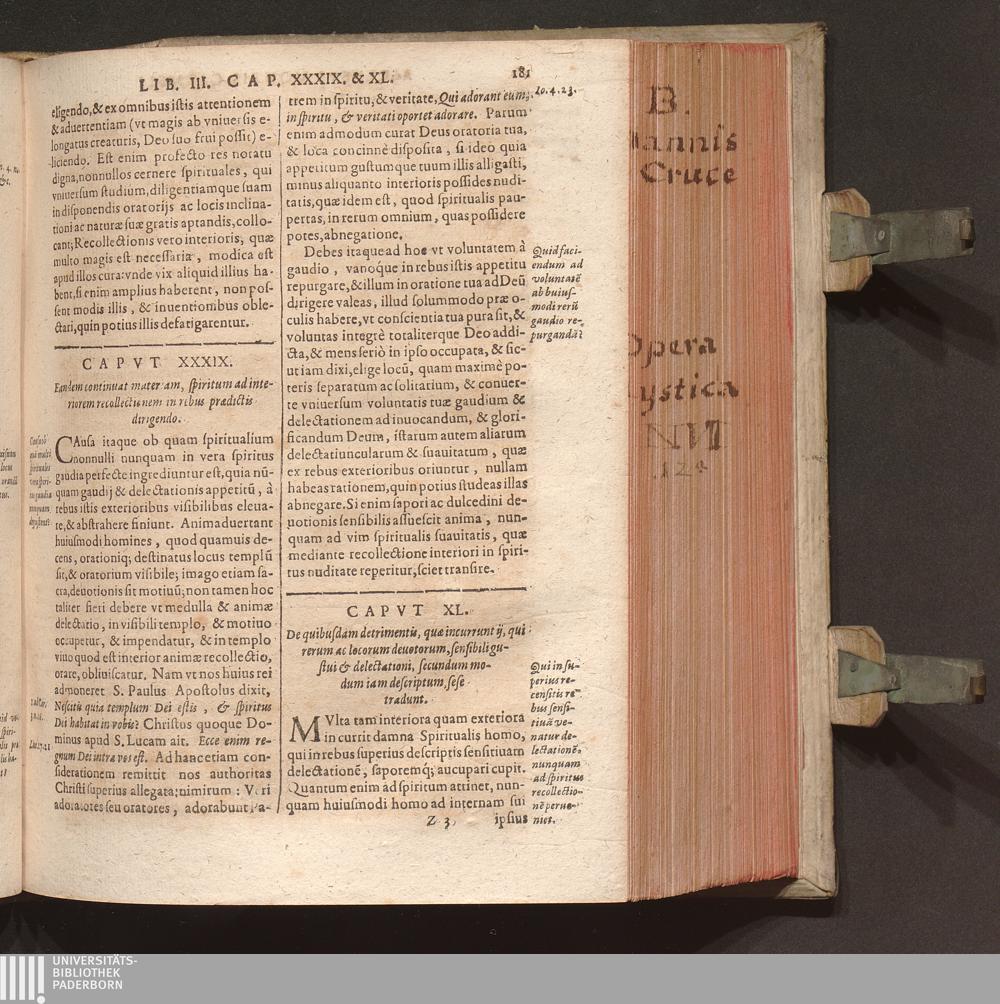 LIB. III. CAP. XXXIX. & XL.
181
eligendo, & ex omnibus istis attentionem
& aduertentiam (vt magis ab vniuersis e-
longatus creaturis, Deo suo frui possit) e-
liciendo. Est enim profecto res notatu
digna, nonnullos cernere spirituales, qui
vniuersum studium, diligentiamque suam
in disponendis oratorijs ac locis inclina-
tioni ac naturæ suæ gratis aptandis, collo-
cant; Recollectionis vero interioris, quæ
multo magis est necessaria, modica est
apud illos cura: vnde vix aliquid illius ha-
bent, si enim amplius haberent, non pos-
sent modis illis, & inuentionibus oble-
ctari, quin potius illis defatigarentur.
CAPVT XXXIX.
Eandem continuat materiam, spiritum ad inte-
riorem recollectionem in rebus prædictis
dirigendo.
CAusa itaque ob quam spiritualium
nonnulli nunquam in vera spiritus
gaudia perfecte ingrediuntur est, quia nū-
quam gaudij & delectationis appetitū, à
rebus istis exterioribus visibilibus eleua-
re, & abstrahere finiunt. Animaduertant
huiusmodi homines, quod quamuis de-
cens, orationiq; destinatus locus templū
sit, & oratorium visibile; imago etiam sa-
cra, deuotionis sit motiuū; non tamen hoc
taliter fieri debere vt medulla & animæ
delectatio, in visibili templo, & motiuo
occupetur, & impendatur, & in templo
viuo quod est interior animæ recollectio,
orare, obliuiscatur. Nam vt nos huius rei
admoneret S. Paulus Apostolus dixit,
Nescitis quia templum Dei estis, & spiritus
Dei habitat in vobis? Christus quoque Do-
minus apud S. Lucam ait. Ecce enim re-
gnum Dei intra vos est. Ad hanc etiam con-
siderationem remittit nos authoritas
Christi superius allegata: nimirum: Veri
adoratores seu oratores, adorabunt Pa-
Causa ob
quā multi
spirituales
vera spiri-
tus gaudia
nunquam
Luc. 17. 21
trem in spiritu, & veritate, Qui adorant eum,
in spiritu, & veritati oportet adorare. Parum
enim admodum curat Deus oratoria tua,
& loca concinnè disposita, si ideo quia
appetitum gustumque tuum illis alligasti,
minus aliquanto interioris possides nudi-
tatis, quæ idem est, quod spiritualis pau-
pertas, in rerum omnium, quas possidere
potes, abnegatione.
Debes itaque ad hoc vt voluntatem à
gaudio, vanoque in rebus istis appetitu
repurgare, & illum in oratione tua ad Deū
dirigere valeas, illud solummodo præ o-
culis habere, vt conscientia tua pura sit, &
voluntas integrè totaliterque Deo addi-
cta, & mens seriò in ipso occupata, & sic-
ut iam dixi, elige locū, quam maximè po-
teris separatum ac solitarium, & conuer-
te vniuersum voluntatis tuæ gaudium &
delectationem ad inuocandum, & glori-
ficandum Deum, istarum autem aliarum
delectatiuncularum & suauitatum, quæ
ex rebus exterioribus oriuntur, nullam
habeas rationem, quin potius studeas illas
abnegare. Si enim sapori ac dulcedini de-
uotionis sensibilis assuescit anima, nun-
quam ad vim spiritualis suauitatis, quæ
mediante recollectione interiori in spiri-
tus nuditate reperitur, sciet transire.
CAPVT XL.
De quibusdam detrimentis, quæ incurrunt ij, qui
rerum ac locorum deuotorum, sensibili gu-
stui & delectationi, secundum mo-
dum iam descriptum, sese
tradunt.
MVlta tam interiora quam exteriora
incurrit damna Spiritualis homo,
qui in rebus superius descriptis sensitiuam
delectationē, saporemq́; aucupari cupit.
Quantum enim ad spiritum attinet, nun-
quam huiusmodi homo ad internam sui
Z 3
ipsius
Io. 4. 23.
Quid faci-
endum ad
voluntatē
ab huius-
modi rerū
gaudio re-
purgandā?
Qui in su-
perius re-
censitis re-
bus sensi-
tiuā ve-
natur de-
lectationē,
nunquam
ad spiritus
recollectio-
nē perue-
niet.
B.
annis
Cruce
Opera
ystica
NVI
124
UNIVERSITÄTS-
BIBLIOTHEK
PADERBORN